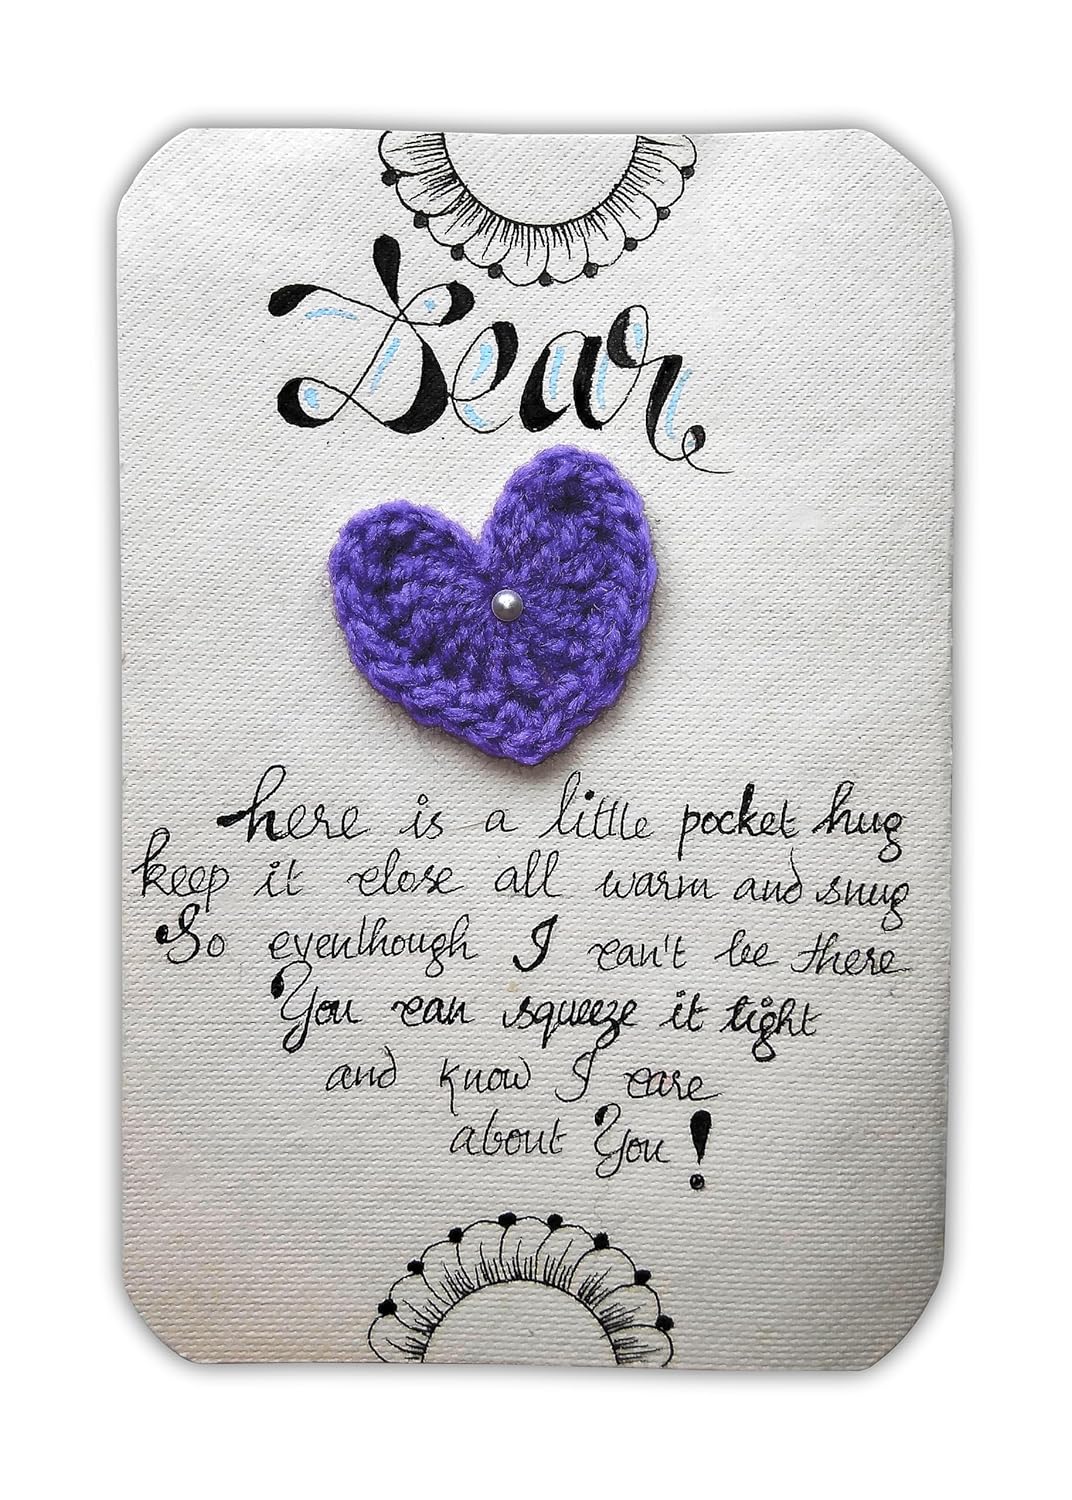 Dear
here is a little pocket hug
keep it close all warm and snug
So eventhough I can't be there
You can squeeze it tight
and know I care
about You!